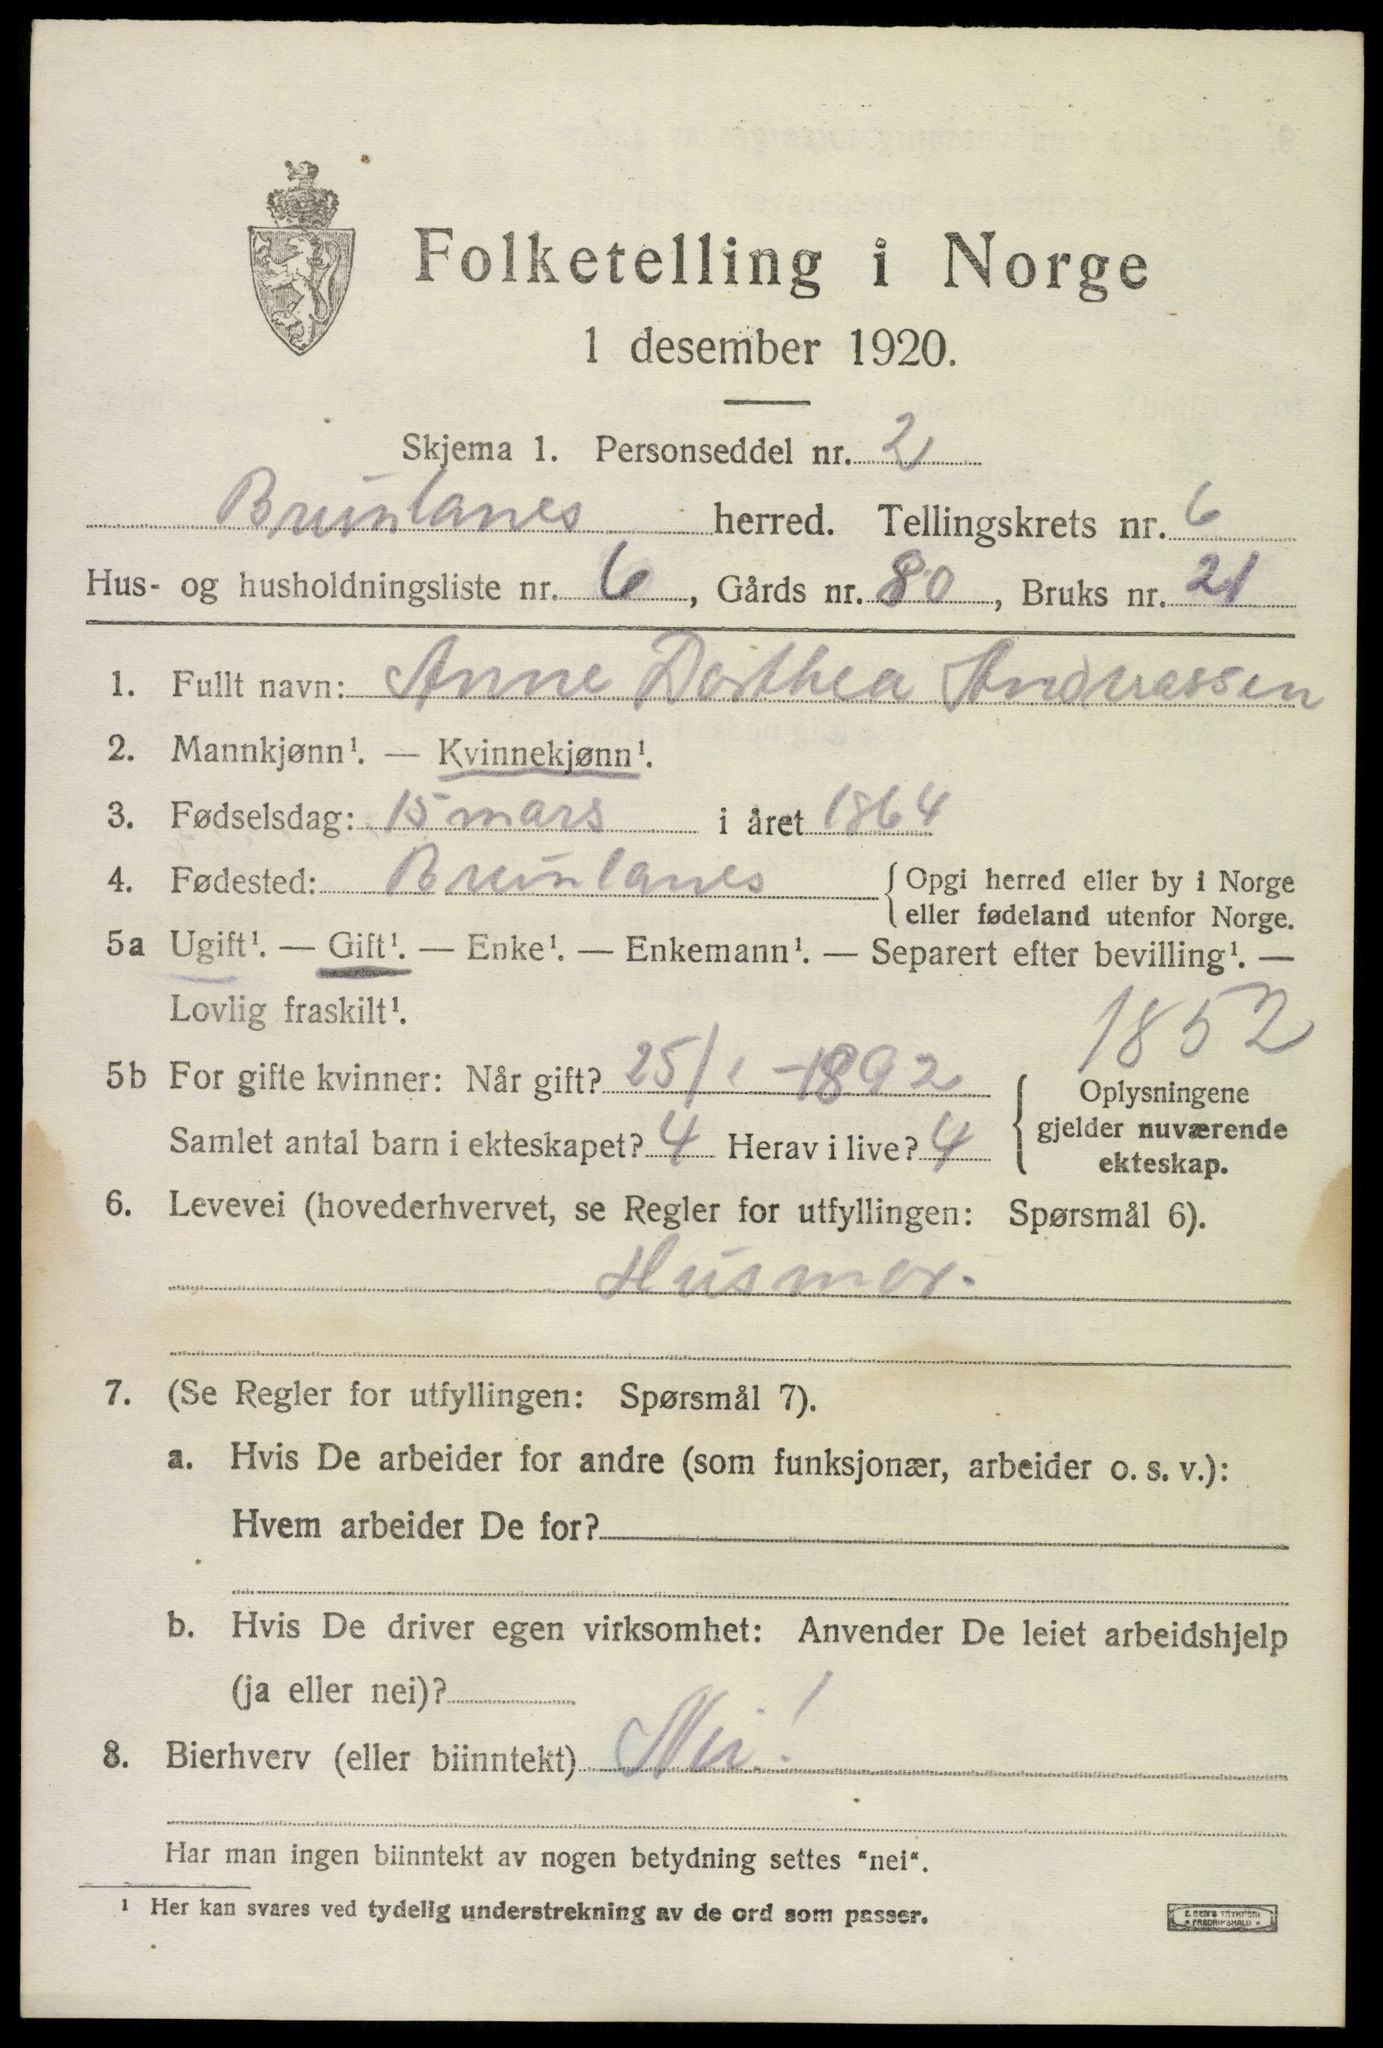 Folketelling i Norge
1 desember 1920.
Skjema 1. Personseddel nr. 2
Brunlanes herred. Tellingskrets nr. 6
Hus- og husholdningsliste nr. 6, Gårds nr. 80, Bruks nr. 21
1. Fullt navn: Anne Dorthea Andreassen
2. Mannkjønn¹. — Kvinnekjønn¹.
3. Fødselsdag: 15 mars i året 1864
4. Fødested: Brunlanes {Opgi herred eller by i Norge
eller fødeland utenfor Norge.
5a Ugift¹. — Gift¹. — Enke¹. — Enkemann¹. — Separert efter bevilling¹. —
Lovlig fraskilt¹.
1852
5b For gifte kvinner: Når gift? 25/1 -1892
Samlet antal barn i ekteskapet? 4 Herav i live? 4
{Oplysningene
gjelder nuværende
ekteskap.
6. Levevei (hovederhvervet, se Regler for utfyllingen: Spørsmål 6).
Husmor.
7. (Se Regler for utfyllingen: Spørsmål 7).
a. Hvis De arbeider for andre (som funksjonær, arbeider o. s. v.):
Hvem arbeider De for?
b. Hvis De driver egen virksomhet: Anvender De leiet arbeidshjelp
(ja eller nei)?
8. Bierhverv (eller biinntekt) Nei!
Har man ingen biinntekt av nogen betydning settes "nei".
¹ Her kan svares ved tydelig understrekning av de ord som passer.